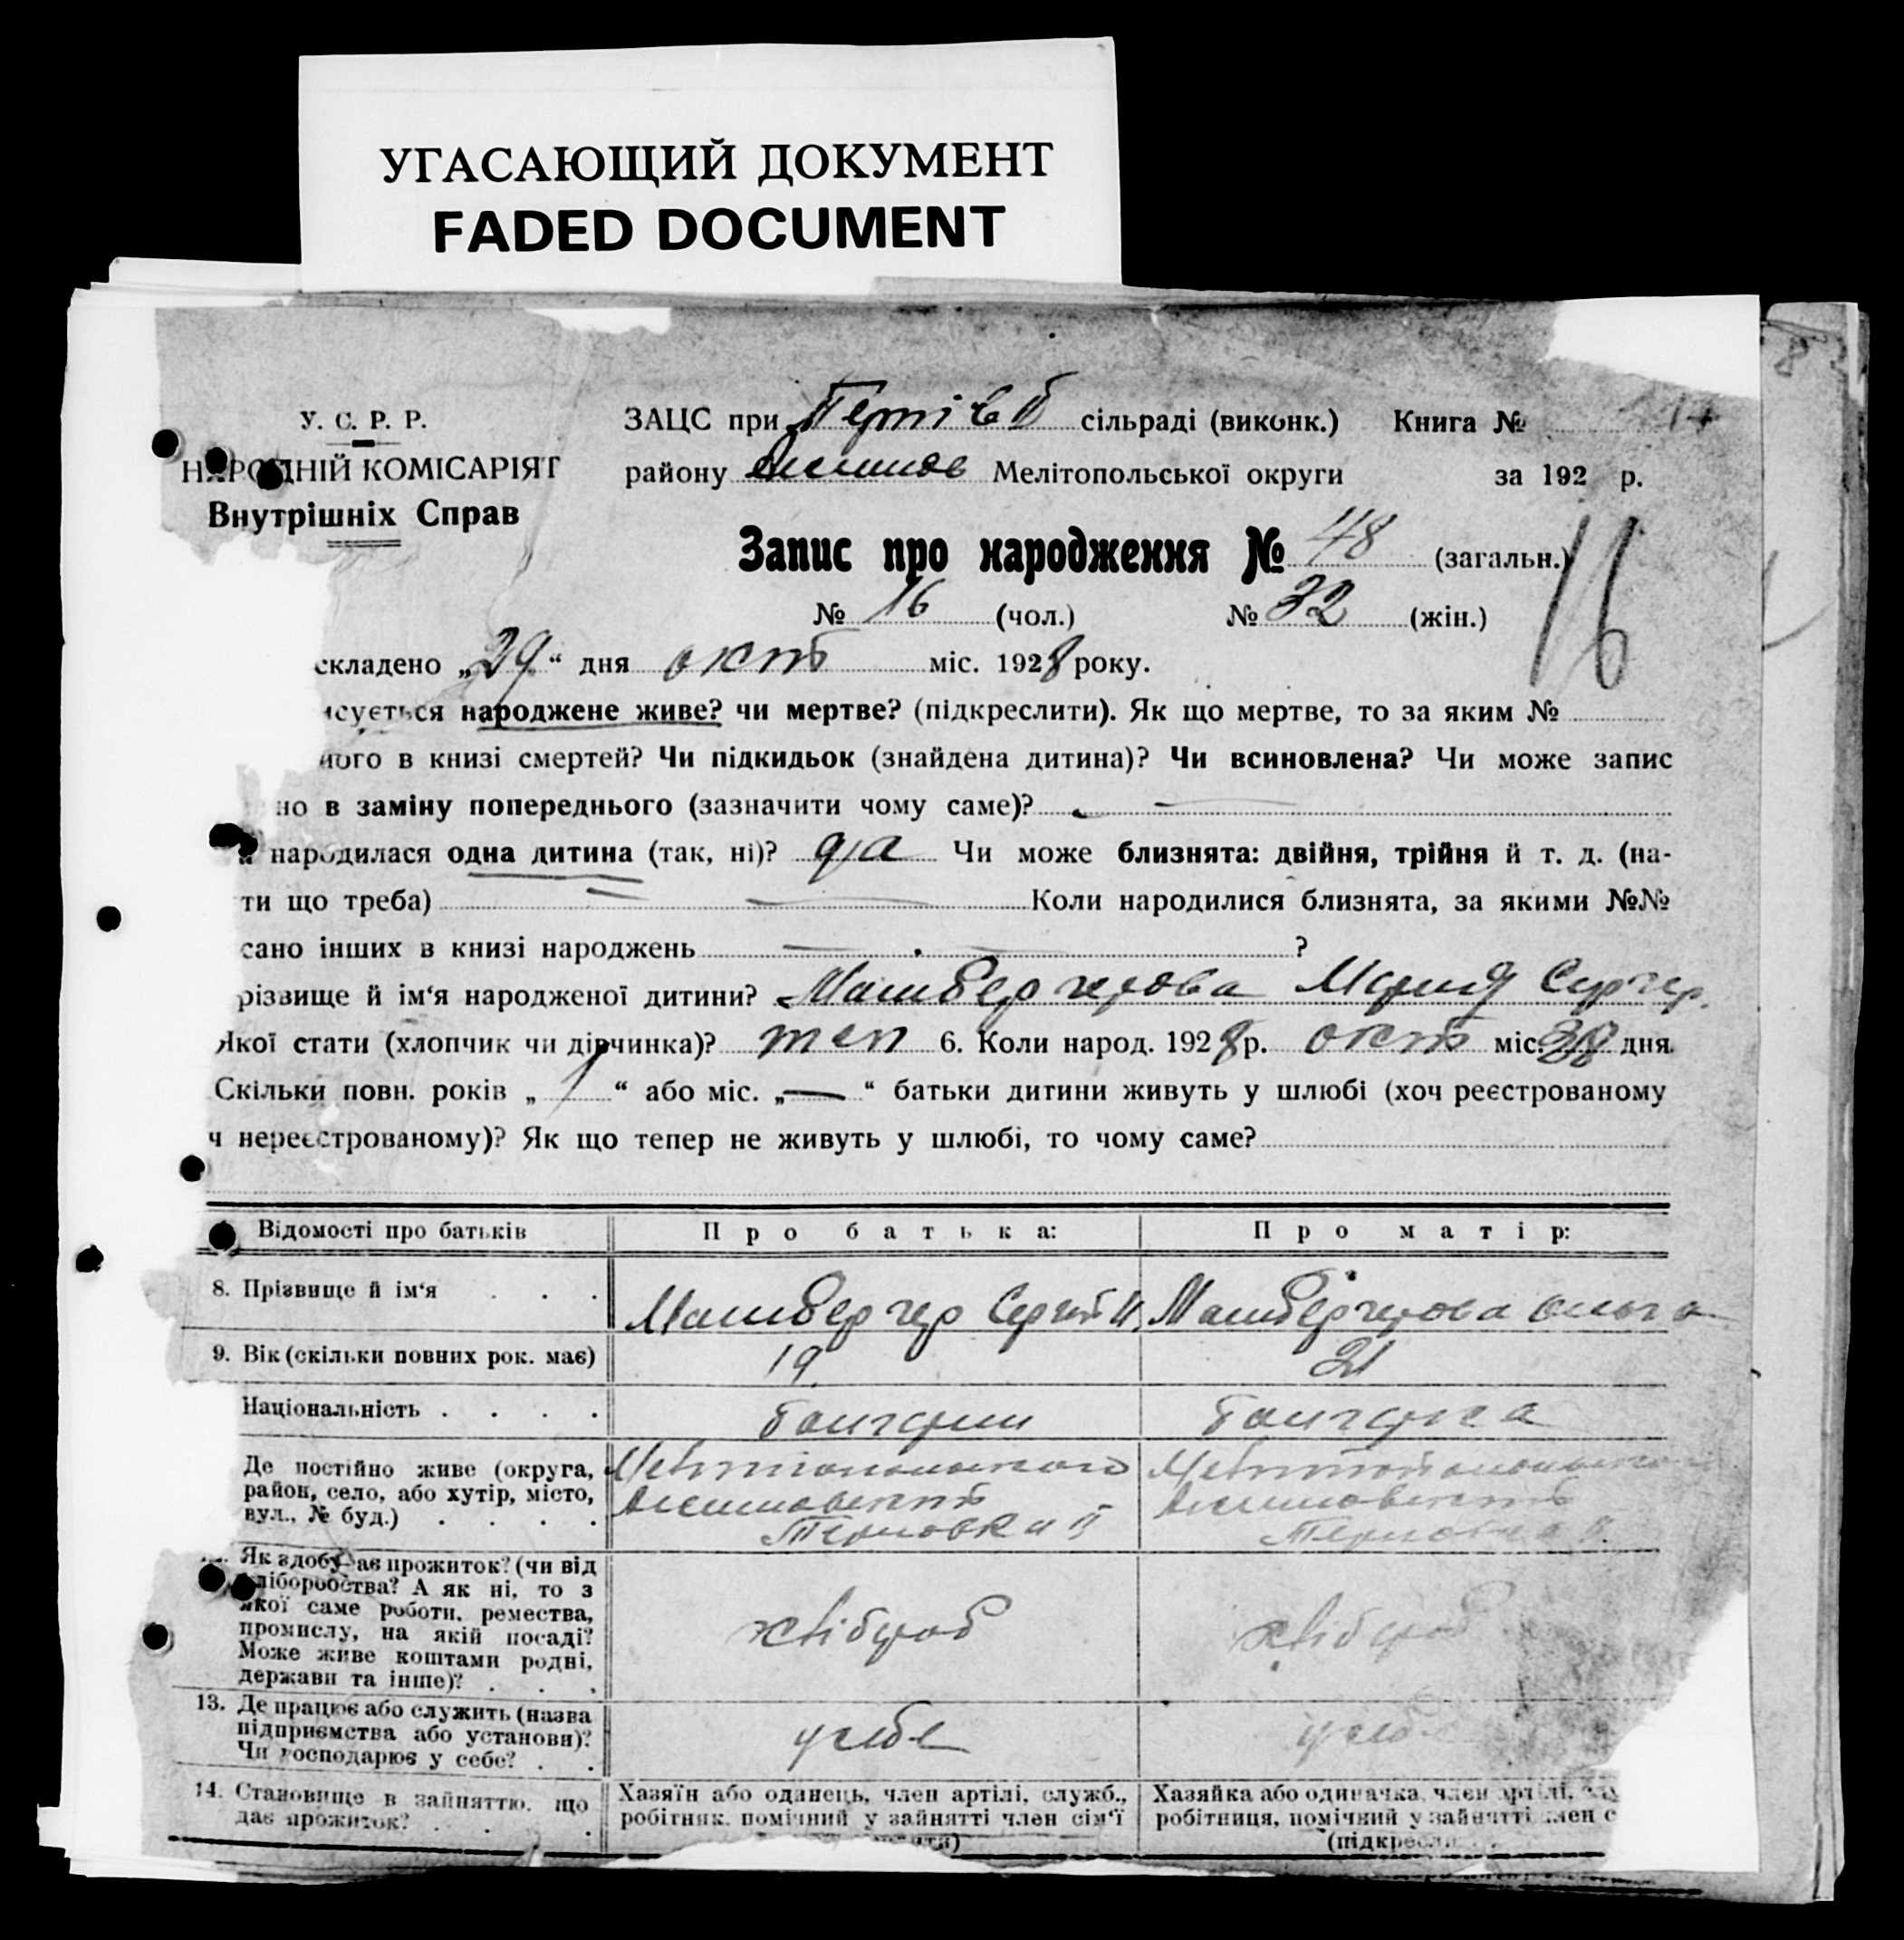 УГАСАЮЩИЙ ДОКУМЕНТ
FADED DOCUMENT
У. С. Р. Р.
НАРОДНІЙ КОМІСАРІЯТ
Внутрішніх Справ
ЗАЦС при сільраді (виконк.) Книга №
району Мелітопольської округи за 192 р.
Запис про народження № 48 (загальн.)
№ 16 (чол.) № 32 (жін.)
16
складено „29“ дня окт міс. 1928 року.
ісується народжене живе? чи мертве? (підкреслити). Як що мертве, то за яким №
ного в книзі смертей? Чи підкидьок (знайдена дитина)? Чи всиновлена? Чи може запис
но в заміну попереднього (зазначити чому саме)?
народилася одна дитина (так, ні)? да Чи може близнята: двійня, трійня й т. д. (на-
ти що треба) Коли народилися близнята, за якими №№
сано інших в книзі народжень ?
різвище й ім‘я народженої дитини? Машберчерова Мария
Якої стати (хлопчик чи дівчинка)? жен 6. Коли народ. 1928 р. окт міс. дня
Скільки повн. років „1“ або міс. „—“ батьки дитини живуть у шлюбі (хоч реєстрованому
ч нереєстрованому)? Як що тепер не живуть у шлюбі, то чому саме?
Відомості про батьків Про батька: Про матір:
8. Прізвище й ім‘я Машберчер Сергій Машберчерова Ольга
9. Вік (скільки повних рок. має) 19 21
Національність болгарин болгарка
Де постійно живе (округа,
район, село, або хутір, місто,
вул., № буд.)
Терновка II
Як здобуває прожиток? (чи від
хліборобства? А як ні, то з
якої саме роботи, ремества,
промислу, на якій посаді?
Може живе коштами родні,
держави та інше)?
хлібороб хлібороб
13. Де працює або служить (назва
підприємства або установи)?
Чи господарює у себе?
у себе у себе
14. Становище в зайняттю, що
дає прожиток?
Хазяїн або одинець, член артілі, служб.,
робітник, помічний у зайнятті член сім‘ї
Хазяйка або одиначка, член артілі,
робітниця, помічний у зайнятті член с
(підкресли